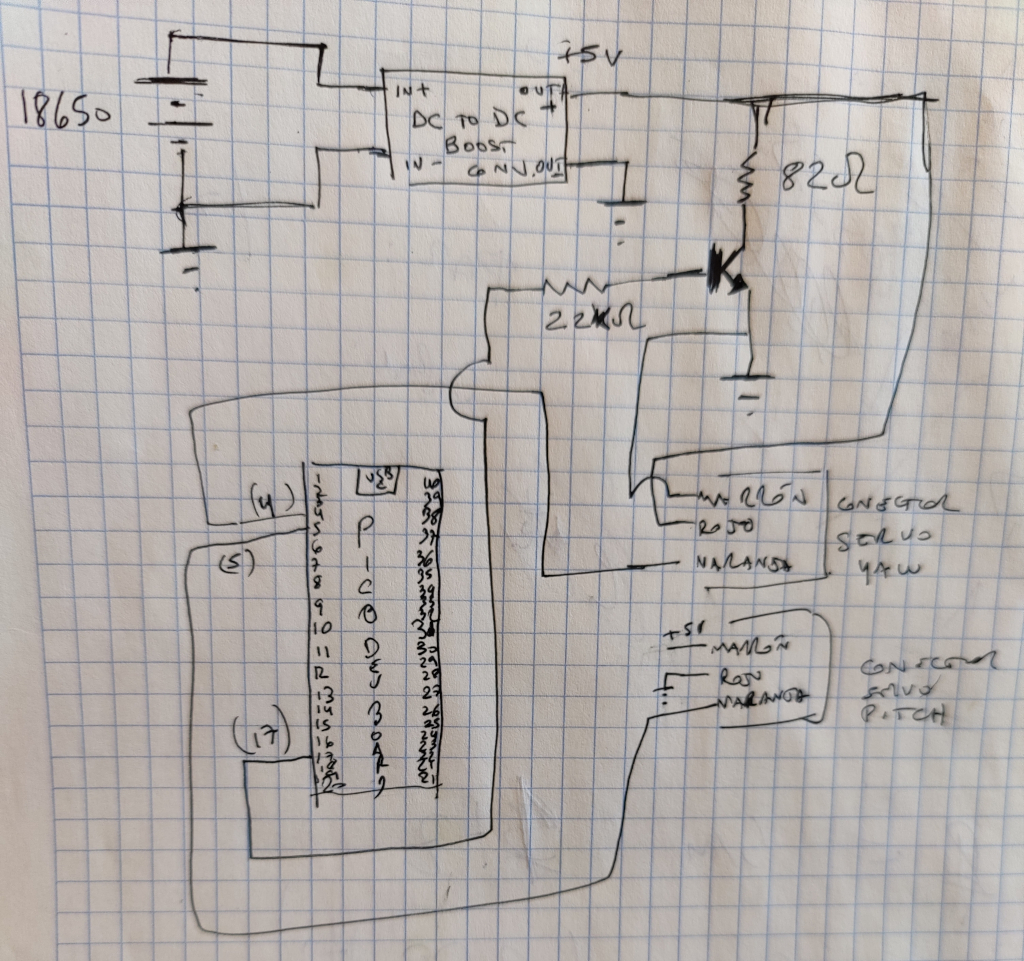 +5V
18650
IN+ OUT+
DC TO DC
BOOST
IN- CONV. OUT-
82Ω
22KΩ
USB
PICO DEV BOARD
1
2
3
4
5
6
7
8
9
10
11
12
13
14
15
16
17
18
19
20
40
39
38
37
36
35
34
33
32
31
30
29
28
27
26
25
24
23
22
21
(4)
(5)
(17)
MARRÓN
ROJO
NARANJA
CONECTOR
SERVO
YAW
+5V
MARRÓN
ROJO
NARANJA
CONECTOR
SERVO
PITCH